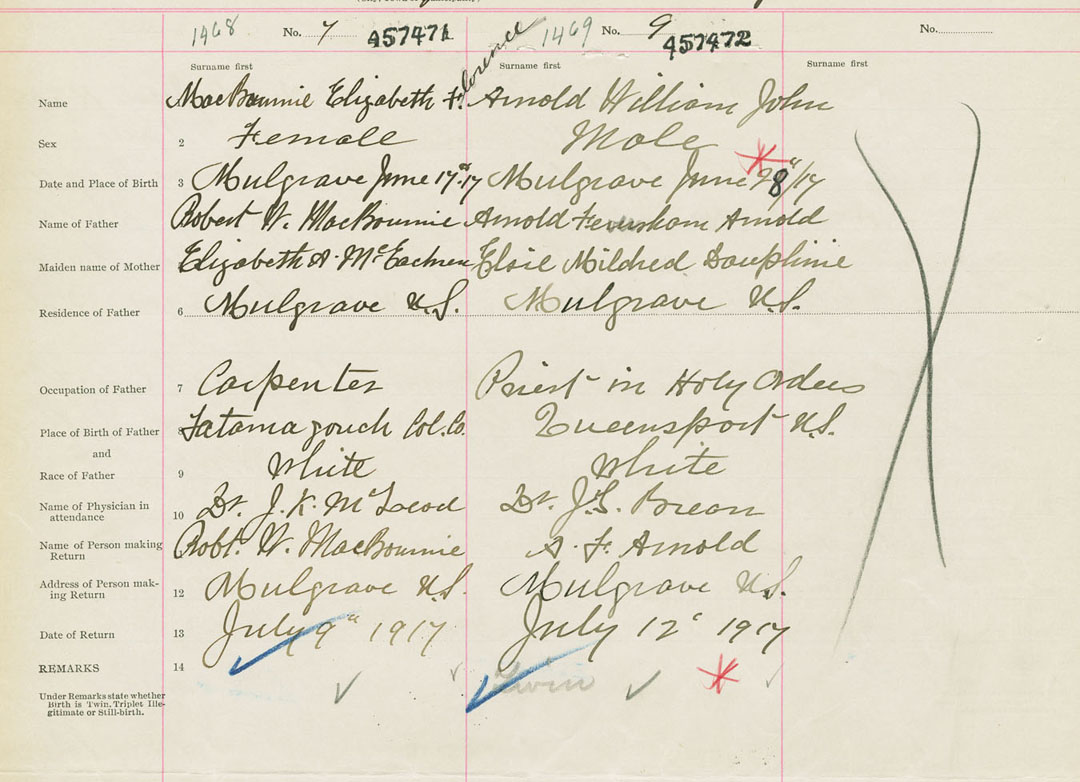 1468 No. 7 457471 1469 No. 9 457472 No.
Surname first Surname first Surname first
Florence
Name MacBournie Elizabeth F. Arnold William John
Sex 2 Female Male
Date and Place of Birth 3 Mulgrave June 17"17 Mulgrave June 28"/17
Name of Father Robert W. MacBournie Arnold Feversham Arnold
Maiden name of Mother Elizabeth A. McEachren Elsie Mildred Dauphine
Residence of Father 6 Mulgrave N.S. Mulgrave N.S.
Occupation of Father 7 Carpenter Priest in Holy Orders
Place of Birth of Father 8 Tatamagouch Col. Co. Queensport N.S.
and
Race of Father 9 White White
Name of Physician in
attendance 10 Dr. J. K. McLeod Dr. J.S. Brean
Name of Person making
Return Robt. W. MacBournie A. F. Arnold
Address of Person mak-
ing Return 12 Mulgrave N.S. Mulgrave N.S.
Date of Return 13 July 9" 1917 July 12" 1917
REMARKS 14 Twin
Under Remarks state whether
Birth is Twin, Triplet Ille-
gitimate or Still-birth.